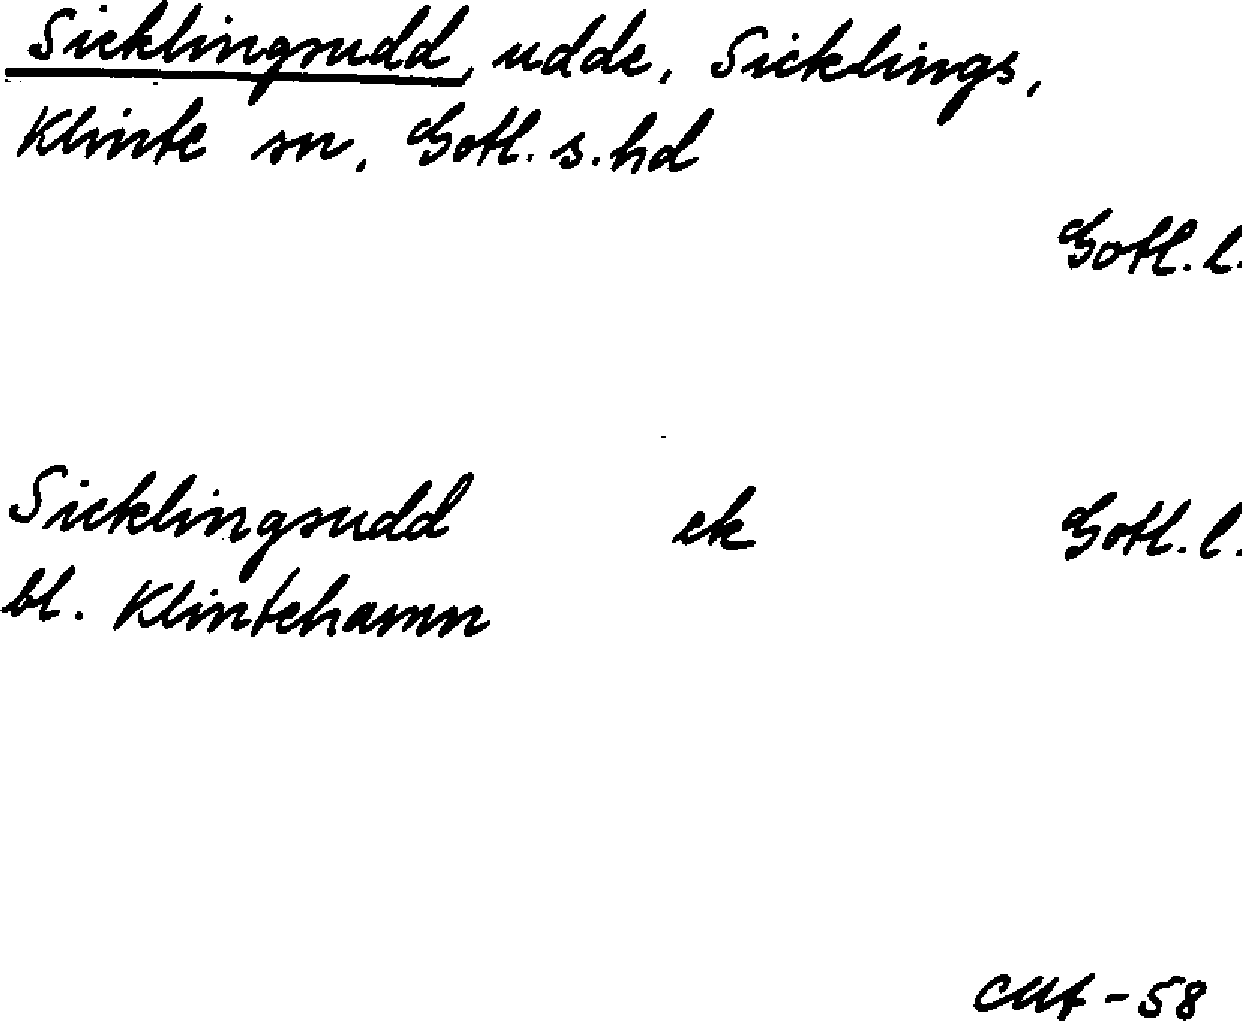 Sicklingsudd, udde, Sicklings,
Klinte sn, Gotl. s. hd
Gotl. l.
Sicklingsudd ek Gotl. l.
bl. Klintehamn
-58